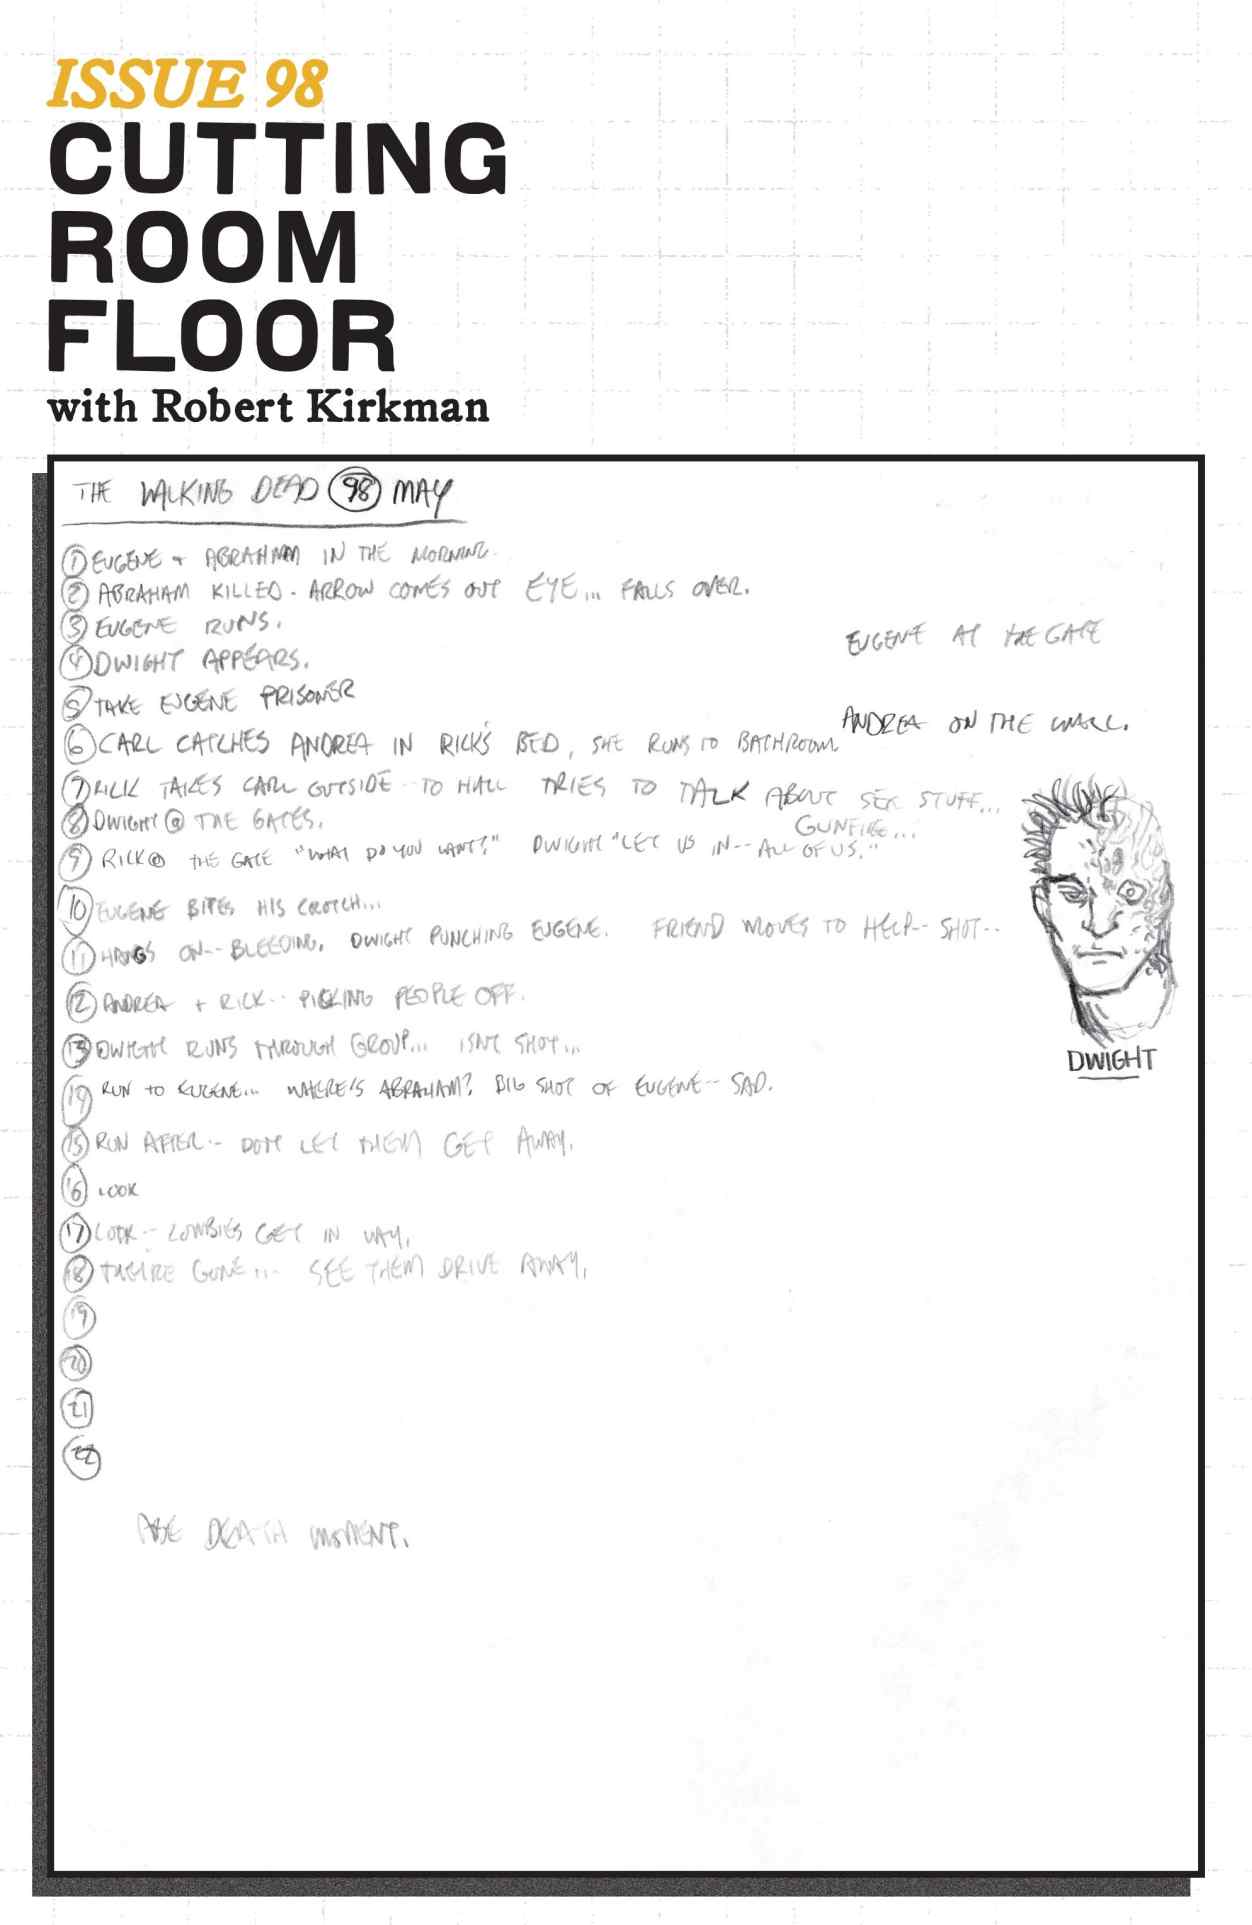 ISSUE 98
CUTTING
ROOM
FLOOR
with Robert Kirkman
THE WALKING DEAD 98 MAY
1 EUGENE + ABRAHAM IN THE MORNING.
2 ABRAHAM KILLED - ARROW COMES OUT EYE... FALLS OVER.
3 EUGENE RUNS.
EUGENE AT THE GATE
4 DWIGHT APPEARS.
5 TAKE EUGENE PRISONER
ANDREA ON THE WALL.
6 CARL CATCHES ANDREA IN RICK'S BED, SHE RUNS TO BATHROOM
7 RICK TAKES CARL OUTSIDE -- TO HALL TRIES TO TALK ABOUT SEX STUFF...
GUNFIRE...
8 DWIGHT @ THE GATES.
9 RICK @ THE GATE "WHAT DO YOU WANT?" DWIGHT "LET US IN-- ALL OF US."
10 EUGENE BITES HIS CROTCH...
11 HANGS ON-- BLEEDING. DWIGHT PUNCHING EUGENE. FRIEND MOVES TO HELP-- SHOT--
12 ANDREA + RICK-- PICKING PEOPLE OFF.
13 DWIGHT RUNS THROUGH GROUP... ISNT SHOT...
DWIGHT
14 RUN TO EUGENE... WHERE'S ABRAHAM? BIG SHOT OF EUGENE-- SAD.
15 RUN AFTER-- DONT LET THEM GET AWAY.
16 LOOK
17 LOOK-- ZOMBIES GET IN WAY.
18 THEY'RE GONE... SEE THEM DRIVE AWAY.
19
20
21
22
ABE DEATH MOMENT.